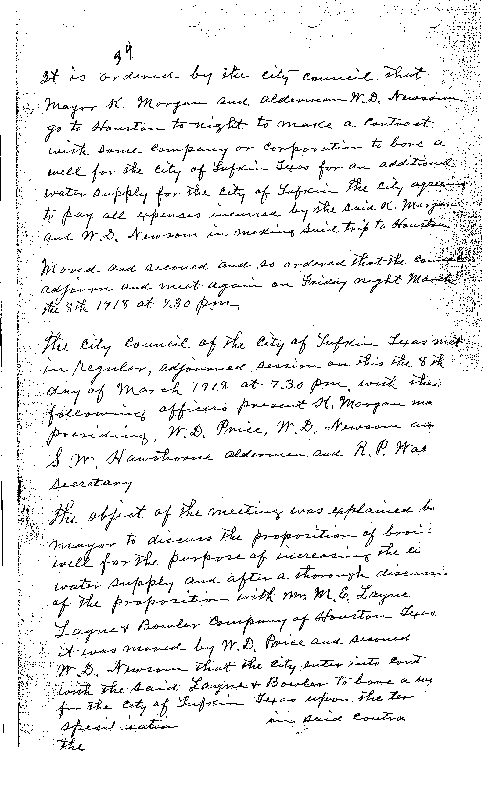 34
It is ordered by the city council that
Mayor K. Morgan and alderman W.D. Newsom
go to Houston to night to make a contract
with some company or corporation to bore a
well for the city of Lufkin Texas for an additional
water supply for the city of Lufkin the city agreeing
to pay all expenses incurred by the said K. Morgan
and W.D. Newsom in making said trip to Houston
Moved and second and so ordered that the
adjourn and meet again on Friday night March
the 8th 1918 at 7.30 pm
The city council of the city of Lufkin Texas met
in regular, adjourned session on this the 8th
day of March 1918 at 7.30 pm with the
following officers present K. Morgan
presiding, W.D. Price, W.D. Newsom
S.W. Hawthorne aldermen and R.P.
secretary
The object of the meeting was explained b
mayor to discuss the proposition of
well for the purpose of increasing the ci
water supply and after a thorough discussi
of the proposition with Mr. M.E. Layne
Layne & Bowler Company of Houston Texas
it was moved by W.D. Price and second
W.D. Newsom that the city enter into cont
with the said Layne & Bowler to bore a w
for the city of Lufkin Texas upon the ter
in said contra
the